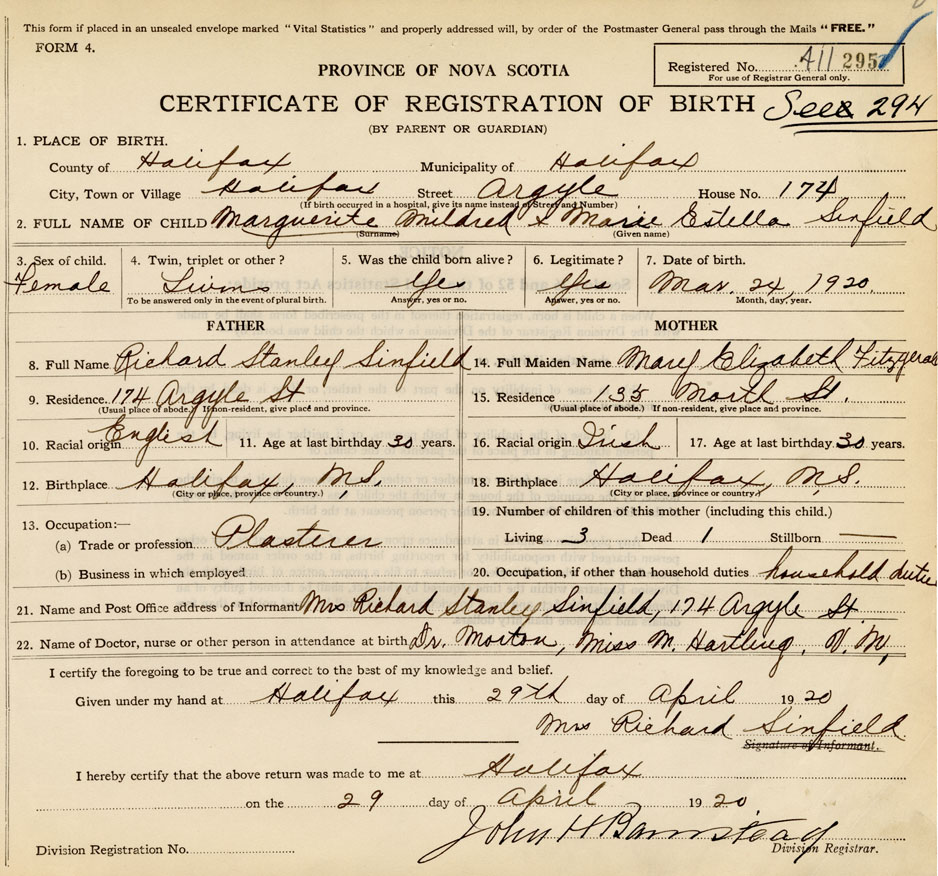 This form if placed in an unsealed envelope marked "Vital Statistics" and properly addressed will, by order of the Postmaster General pass through the Mails "FREE."
FORM 4.
Registered No. A11 295
For use of Registrar General only.
PROVINCE OF NOVA SCOTIA
CERTIFICATE OF REGISTRATION OF BIRTH See 294
(BY PARENT OR GUARDIAN)
1. PLACE OF BIRTH.
County of Halifax Municipality of Halifax
City, Town or Village Halifax Street Argyle House No. 174
(If birth occurred in a hospital, give its name instead of Street and Number)
2. FULL NAME OF CHILD Marguerite Mildred & Marie Estella Sinfield
(Surname) (Given name)
3. Sex of child. 4. Twin, triplet or other? 5. Was the child born alive? 6. Legitimate? 7. Date of birth.
Female Twins Yes Yes Mar. 24, 1920
To be answered only in the event of plural birth. Answer, yes or no. Answer, yes or no. Month, day, year.
FATHER MOTHER
8. Full Name Richard Stanley Sinfield 14. Full Maiden Name Mary Elizabeth Fitzgerald
9. Residence. 174 Argyle St 15. Residence 135 North St.
(Usual place of abode.) If non-resident, give place and province. (Usual place of abode.) If non-resident, give place and province.
10. Racial origin English 11. Age at last birthday 30 years. 16. Racial origin Irish 17. Age at last birthday 30 years.
12. Birthplace Halifax, N.S. 18. Birthplace Halifax, N.S.
(City or place, province or country.) (City or place, province or country.)
13. Occupation:— 19. Number of children of this mother (including this child.)
(a) Trade or profession Plasterer Living 3 Dead 1 Stillborn —
(b) Business in which employed 20. Occupation, if other than household duties household duties
21. Name and Post Office address of Informant Mrs Richard Stanley Sinfield, 174 Argyle St.
22. Name of Doctor, nurse or other person in attendance at birth Dr. Morton, Miss M. Hartling, V. M,
I certify the foregoing to be true and correct to the best of my knowledge and belief.
Given under my hand at Halifax this 29th day of April 1920
Mrs Richard Sinfield
Signature of Informant.
I hereby certify that the above return was made to me at Halifax
on the 29 day of April 1920
John H Barnstead
Division Registration No. Division Registrar.